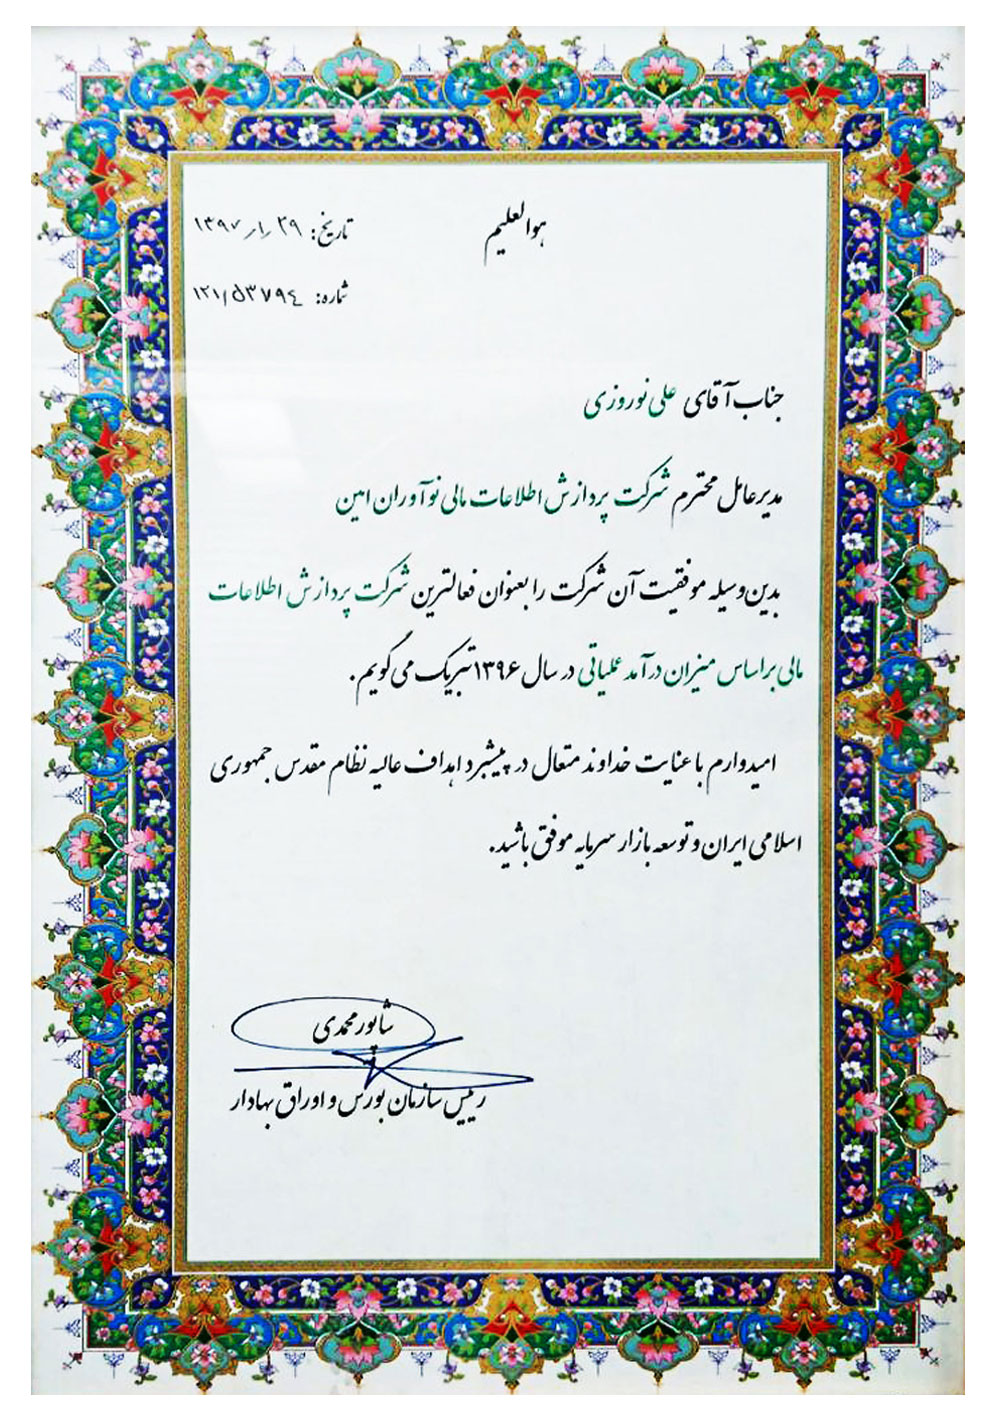 هوالعلیم
تاریخ: ۱۳۹۷/۰۱/۲۹
شماره: ۱۲۱/۵۳۷۹۴
جناب آقای علی نوروزی
مدیرعامل محترم شرکت پردازش اطلاعات مالی نوآوران امین
بدین‌وسیله موفقیت آن شرکت را بعنوان فعالترین شرکت پردازش اطلاعات
مالی براساس میزان درآمد عملیاتی در سال ۱۳۹۶ تبریک می‌گویم.
امیدوارم با عنایت خداوند متعال در پیشبرد اهداف عالیه نظام مقدس جمهوری
اسلامی ایران و توسعه بازار سرمایه موفق باشید.
شاپور محمدی
رییس سازمان بورس و اوراق بهادار